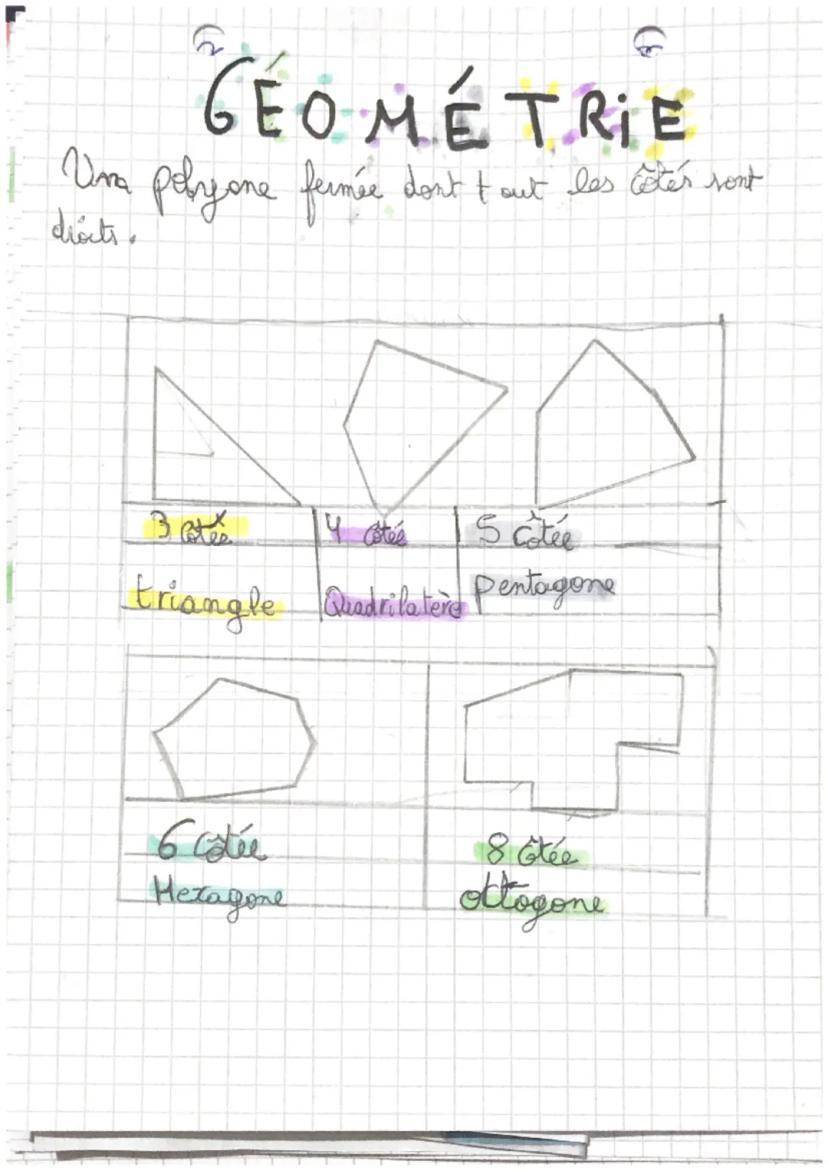 GÉOMÉTRIE
Una polygone fermée dont tout les côtés sont
droits.
3 côtée
4 côtés
5 Côtée
triangle
Quadrilatère
Pentagone
6 Côtée
8 Côtée
Hexagone
octogone